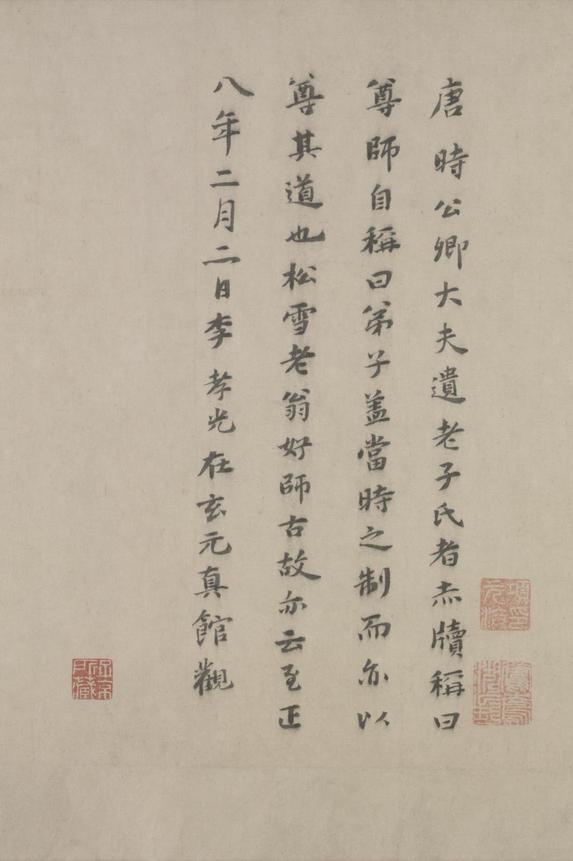 唐時公卿大夫遺老子氏者赤牘稱曰
尊師自稱曰弟子盖當時之制而亦以
尊其道也松雪老翁好師古故亦云至正
八年二月二日李孝光在玄元真館觀